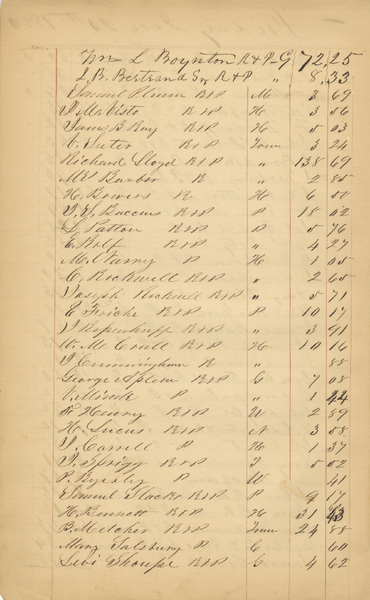 Wm L Boynton R&P G 72,25
L. B. Bertrand Sr R&P " 8.33
Samuel Plumm R&P M 3 69
J McVista R&P H 3 56
James B. Ray R&P H 5 03
V. Suter R&P Town 3 24
Richard Lloyd R&P " 138 69
Barbor R " 2 85
H. Bowers R H 6 50
Baccus R&P P 18 02
Patton R&P P 5 76
E. Rolf R&P " 4 27
M. Varny P H 1 05
C. Rockwell R&P " 2 65
Joseph Rockwell R&P " 5 71
E Fricke R&P P 10 17
J R&P " 3 91
W. Mc R&P H 10 16
J Cunningham R " 88
George Spleen R&P G 7 08
V. P " 1 44
F. Henry R&P W 2 89
H. Lucus R&P N 3 58
J. Carrell P H 1 37
J. Sprigg R&P J 5 52
P. Byerly P W 41
Samuel Slacks R&P P 9 17
H. Kennett R&P H 31 43
B. Melcher R&P Town 24 88
Mary Salsbury P C 60
Levi Shoupe R&P G 4 62